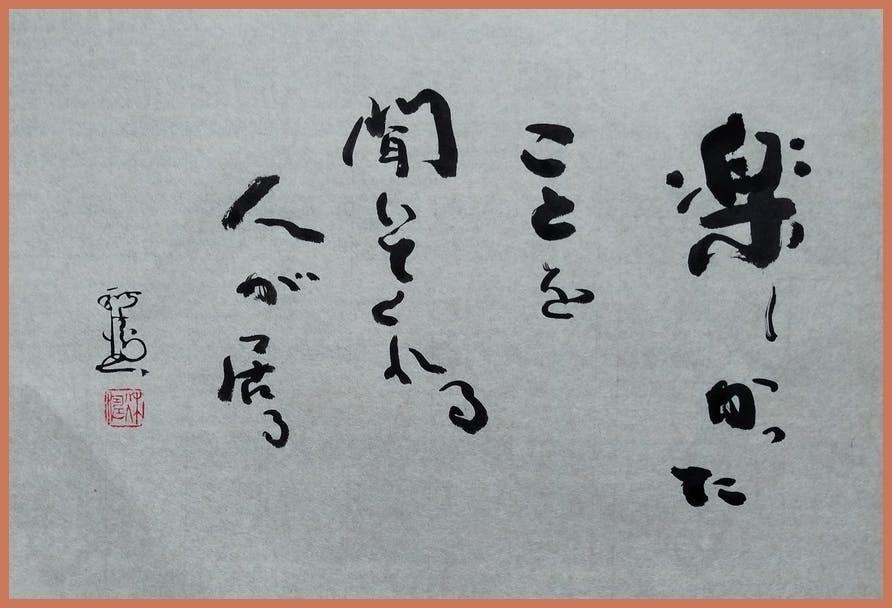 楽しかった
ことを
聞いてくれる
人が居る